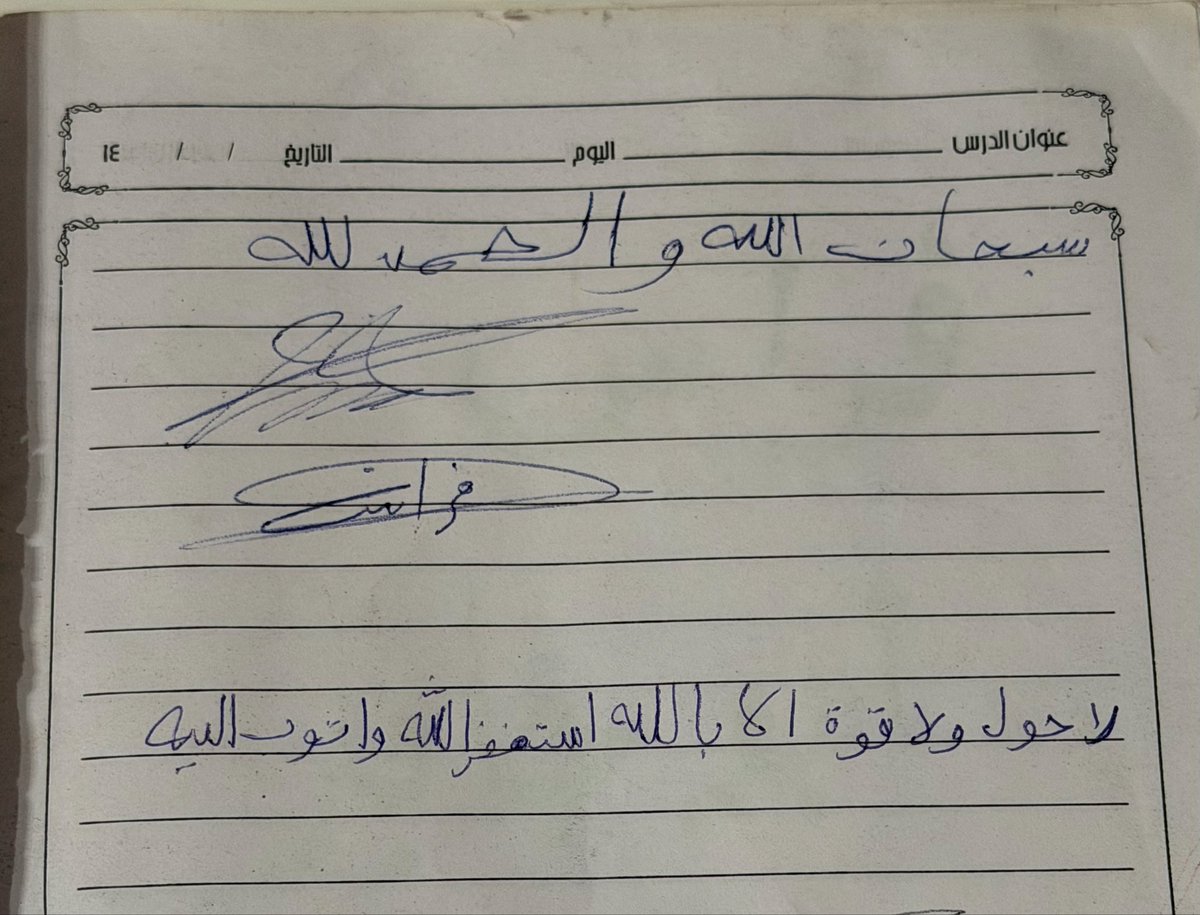 عنوان الدرس اليوم التاريخ / / ١٤
سبحان الله و الحمد لله
لا حول ولا قوة الا بالله استغفر الله واتوب اليه